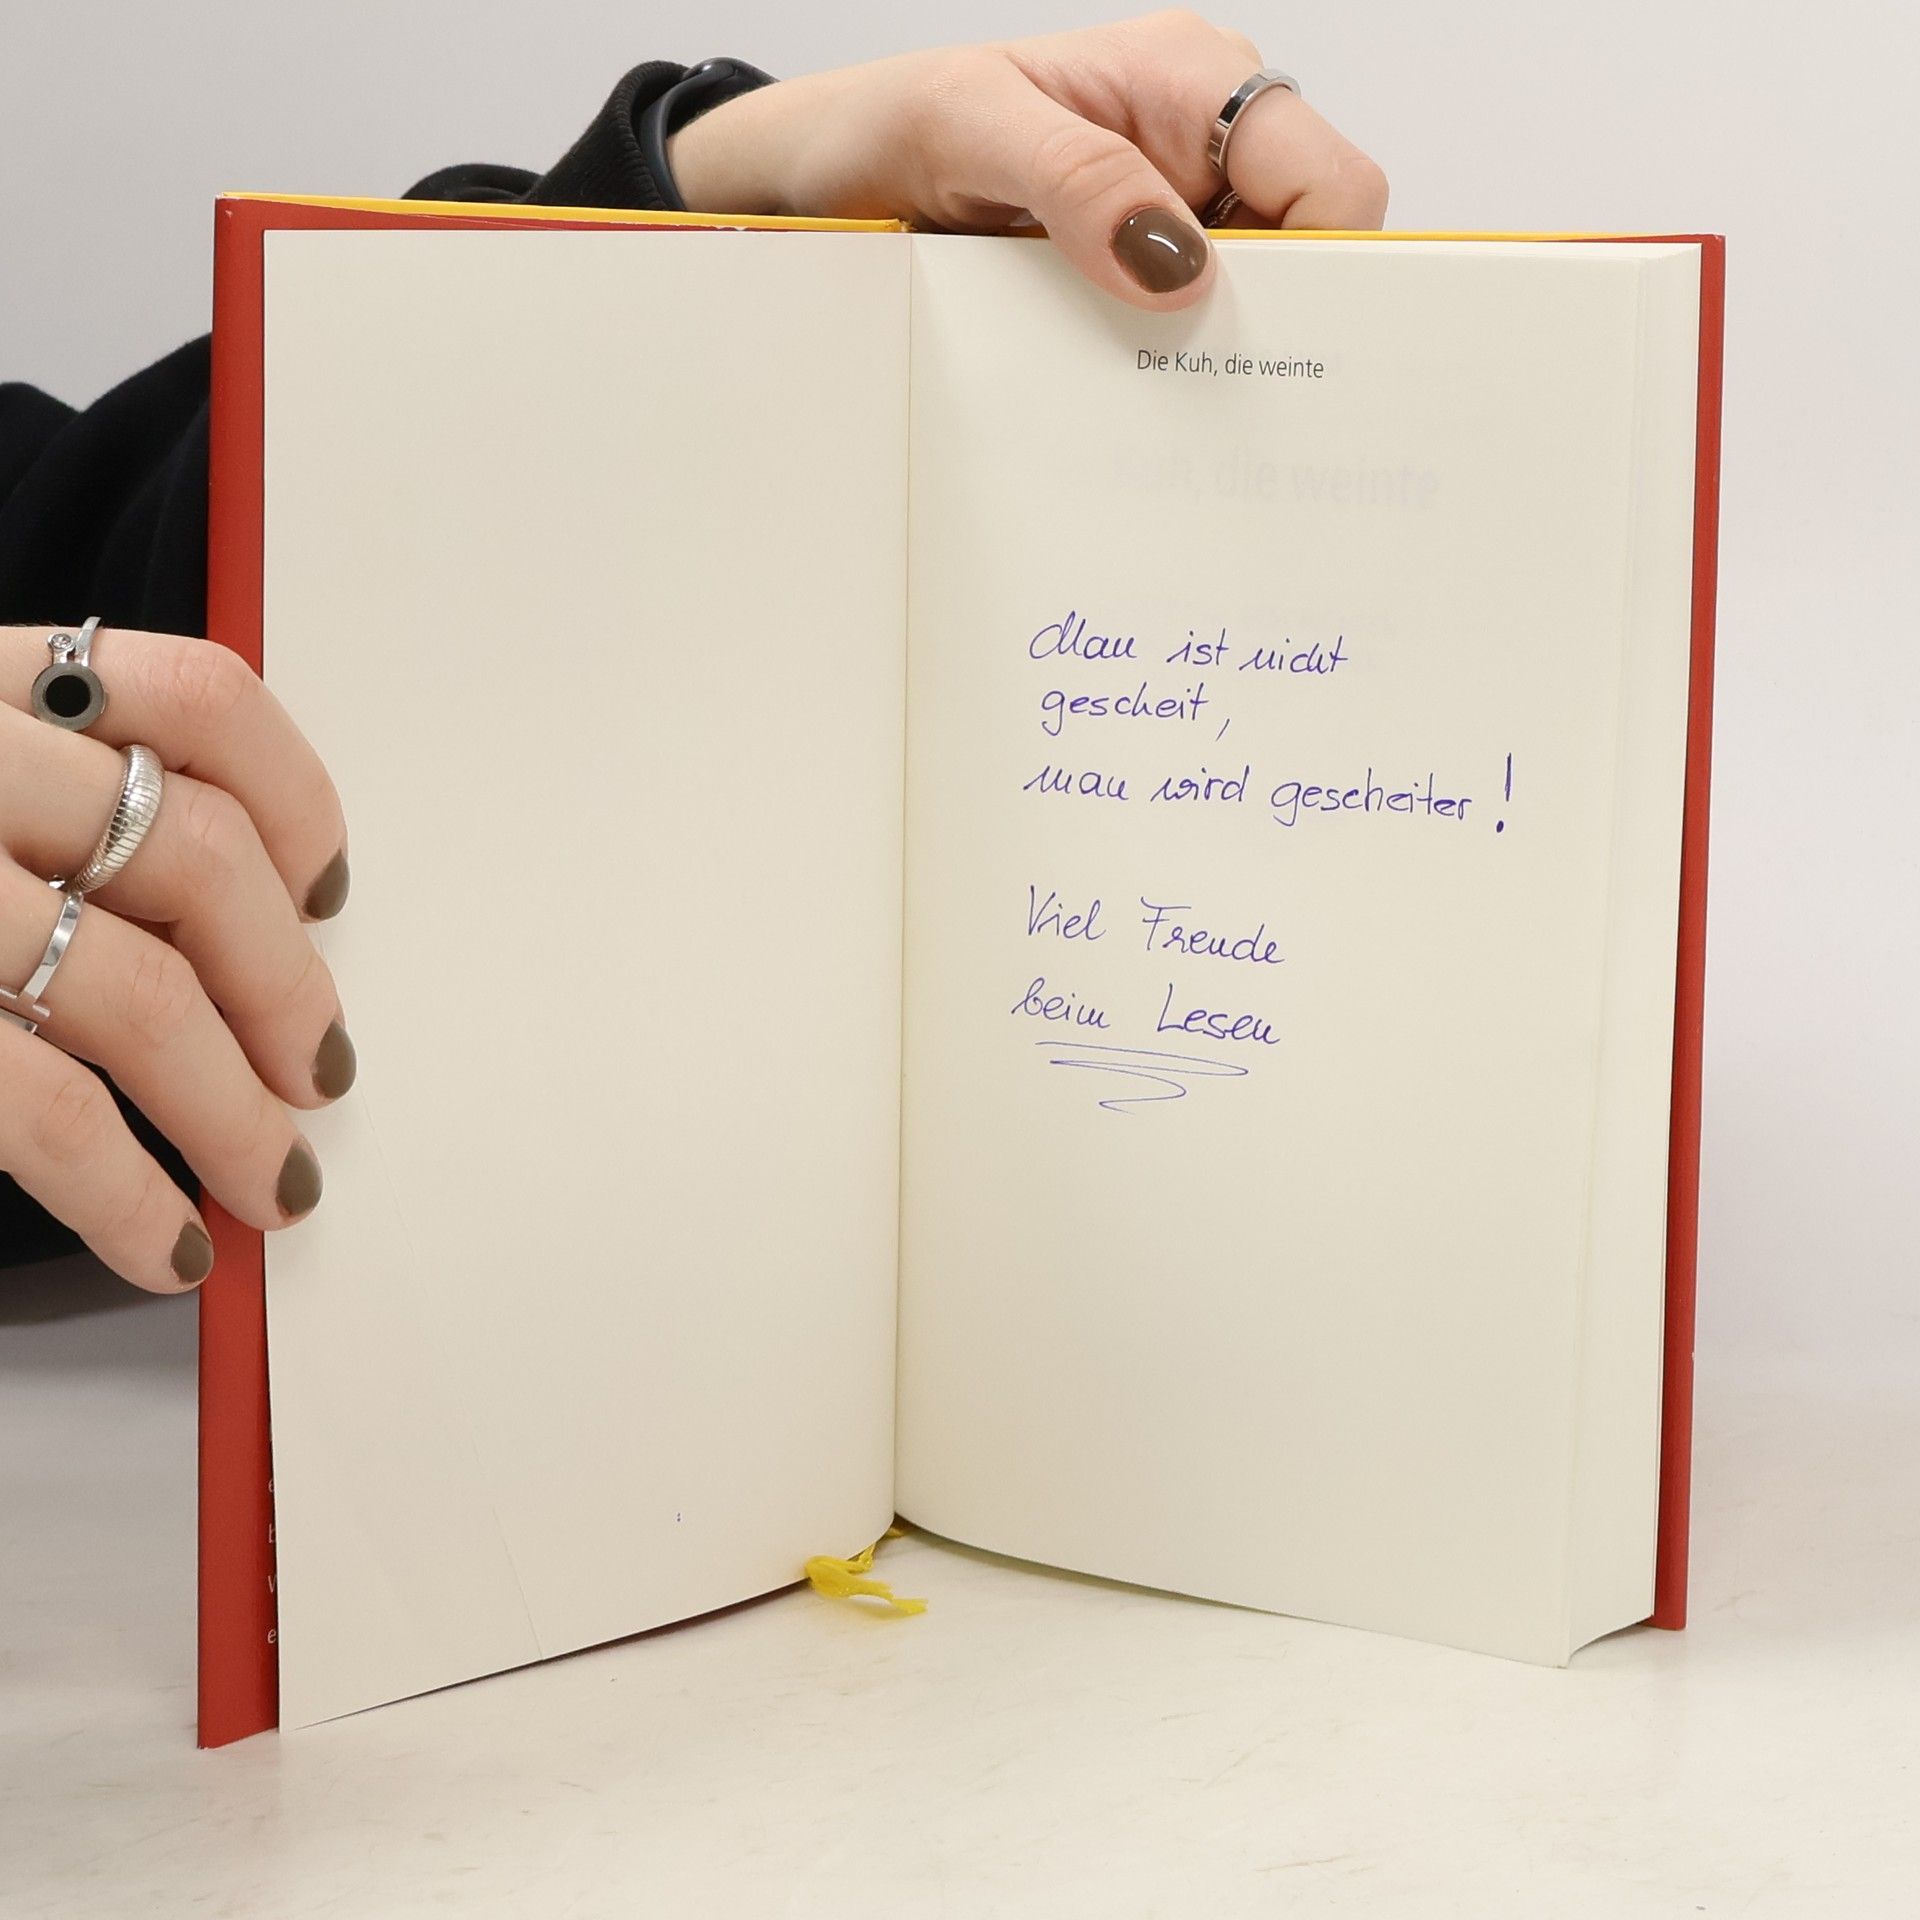 Die Kuh, die weinte
Man ist nicht
gescheit,
man wird gescheiter!
Viel Freude
beim Lesen